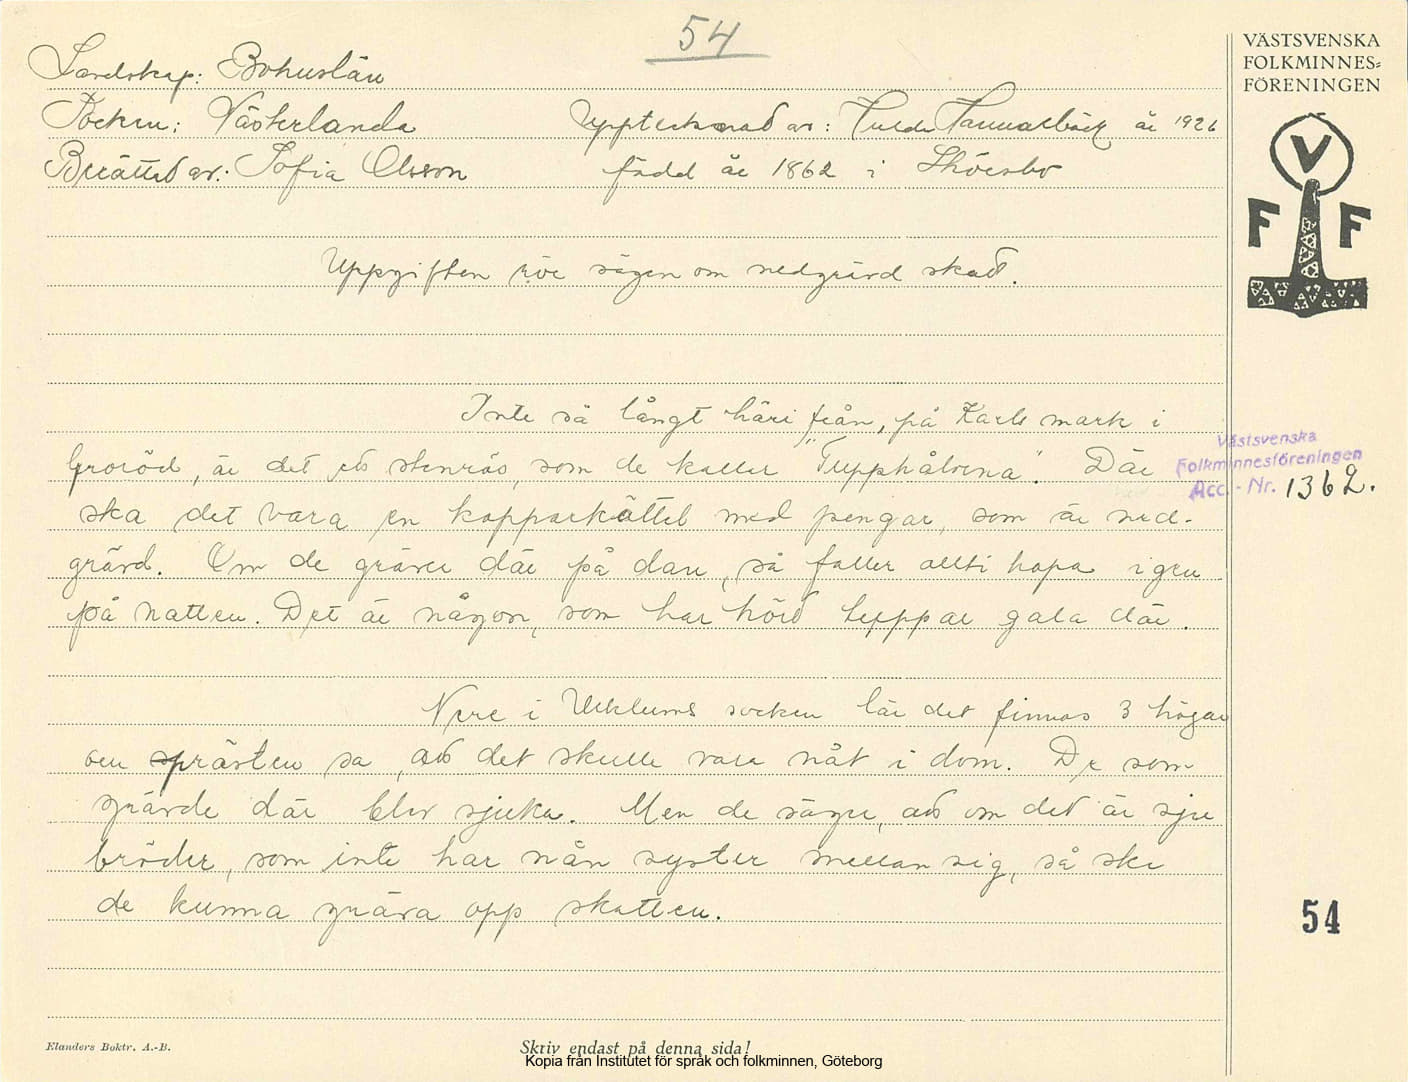 54
VÄSTSVENSKA
FOLKMINNES=
FÖRENINGEN
V
F F
Landskap: Bohuslän
Socken: Västerlanda Upptecknad av: Hulda Hammarbäck år 1926
Berättad av: Sofia Olsson född år 1862 i Skörsbo
Uppgiften rör sägen om nedgrävd skatt.
Inte så långt häri från, på Karls mark i
Groröd, är det ett stenrös, som de kallar "Tupphålorna". Där
ska det vara en kopparkättel med pengar, som är ned-
grävd. Om de gräver där på dan, så faller allti hopa igen
på natten. Det är någon, som har hört tuppar gala där.
Nere i Ucklums socken lär det finnas 3 högar
och prästen sa, att det skulle vara nåt i dom. De som
grävde där blev sjuka. Men de säger, att om det är sju
bröder, som inte har nån syster mellan sig, så ska
de kunna gräva opp skatten.
Västsvenska
Folkminnesföreningen
Acc.-Nr. 1362.
54
Elanders Boktr. A.-B.
Skriv endast på denna sida!
Kopia från Institutet för språk och folkminnen, Göteborg